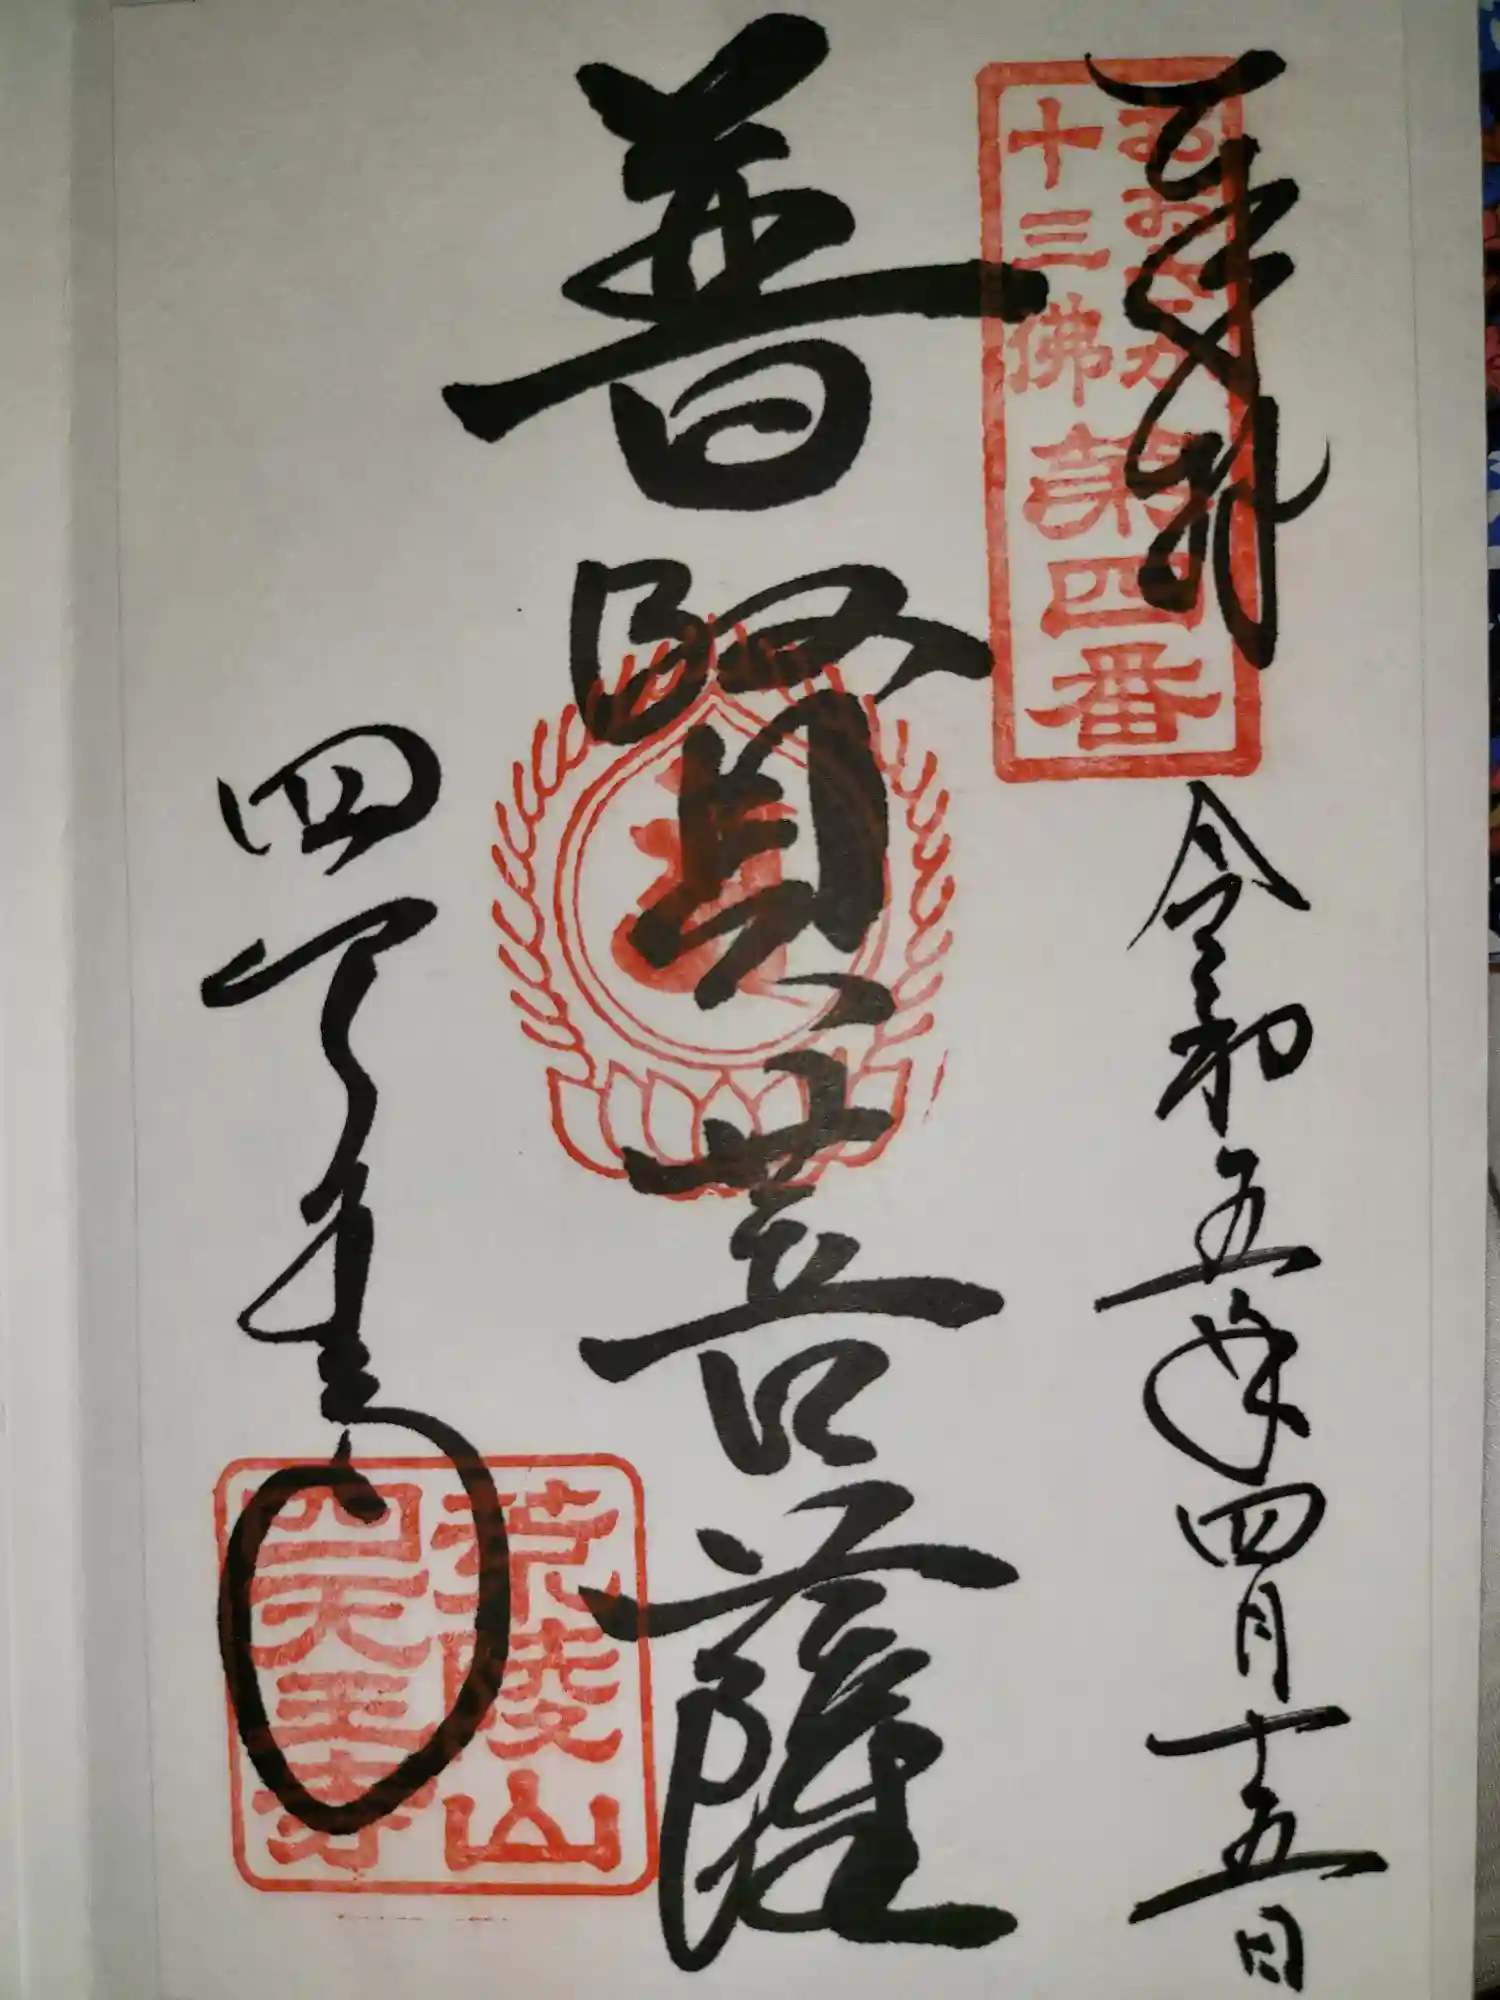 奉拝
おおさか
十三佛
第四番
令和五年四月十五日
普賢菩薩
四天王寺
荒陵山
四天王寺